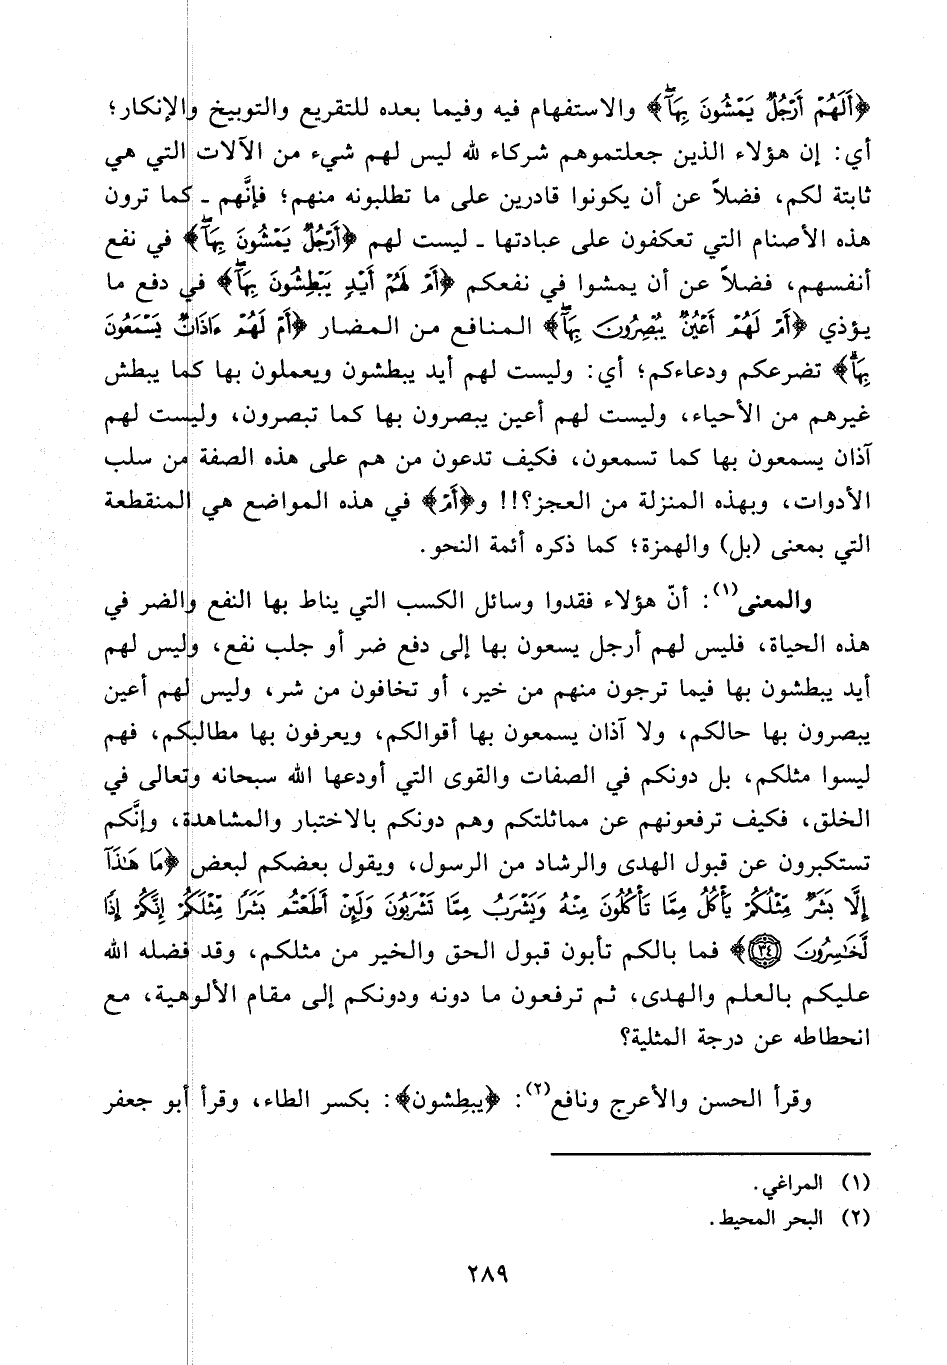 ﴿أَلَهُمْ أَرْجُلٌ يَمْشُونَ بِهَآۖ﴾ والاستفهام فيه وفيما بعده للتقريع والتوبيخ والإنكار؛
أي: إن هؤلاء الذين جعلتموهم شركاء لله ليس لهم شيء من الآلات التي هي
ثابتة لكم، فضلاً عن أن يكونوا قادرين على ما تطلبونه منهم؛ فإنَّهم ـ كما ترون
هذه الأصنام التي تعكفون على عبادتها ـ ليست لهم ﴿أَرْجُلٌ يَمْشُونَ بِهَآۖ﴾ في نفع
أنفسهم، فضلاً عن أن يمشوا في نفعكم ﴿أَمْ لَهُمْ أَيْدٍ يَبْطِشُونَ بِهَآۖ﴾ في دفع ما
يؤذي ﴿أَمْ لَهُمْ أَعْيُنٌ يُبْصِرُونَ بِهَآۖ﴾ المنافع من المضار ﴿أَمْ لَهُمْ ءَاذَانٌ يَسْمَعُونَ
بِهَاۗ﴾ تضرعكم ودعاءكم؛ أي: وليست لهم أيد يبطشون ويعملون بها كما يبطش
غيرهم من الأحياء، وليست لهم أعين يبصرون بها كما تبصرون، وليست لهم
آذان يسمعون بها كما تسمعون، فكيف تدعون من هم على هذه الصفة من سلب
الأدوات، وبهذه المنزلة من العجز؟!! و﴿أَمْ﴾ في هذه المواضع هي المنقطعة
التي بمعنى (بل) والهمزة؛ كما ذكره أئمة النحو.
والمعنى(١): أنّ هؤلاء فقدوا وسائل الكسب التي يناط بها النفع والضر في
هذه الحياة، فليس لهم أرجل يسعون بها إلى دفع ضر أو جلب نفع، وليس لهم
أيد يبطشون بها فيما ترجون منهم من خير، أو تخافون من شر، وليس لهم أعين
يبصرون بها حالكم، ولا آذان يسمعون بها أقوالكم، ويعرفون بها مطالبكم، فهم
ليسوا مثلكم، بل دونكم في الصفات والقوى التي أودعها الله سبحانه وتعالى في
الخلق، فكيف ترفعونهم عن مماثلتكم وهم دونكم بالاختبار والمشاهدة، وإنَّكم
تستكبرون عن قبول الهدى والرشاد من الرسول، ويقول بعضكم لبعض ﴿مَا هَٰذَآ
إِلَّا بَشَرٌ مِّثْلُكُمْ يَأْكُلُ مِمَّا تَأْكُلُونَ مِنْهُ وَيَشْرَبُ مِمَّا تَشْرَبُونَ وَلَئِنْ أَطَعْتُم بَشَرًا مِّثْلَكُمْ إِنَّكُمْ إِذًا
لَّخَٰسِرُونَ ٣٤﴾ فما بالكم تأبون قبول الحق والخير من مثلكم، وقد فضله الله
عليكم بالعلم والهدى، ثم ترفعون ما دونه ودونكم إلى مقام الألوهية، مع
انحطاطه عن درجة المثلية؟
وقرأ الحسن والأعرج ونافع(٢): ﴿يبطِشون﴾: بكسر الطاء، وقرأ أبو جعفر
(١) المراغي.
(٢) البحر المحيط.
٢٨٩